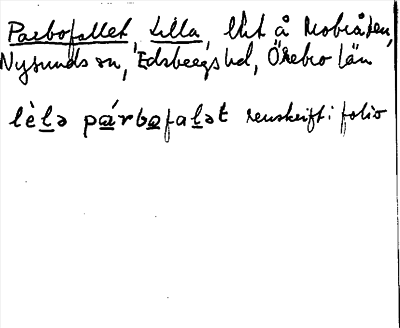 Paebofallet, Lilla, litet å Mobråten,
Nysunds sn, Edsbergs hd, Örebro län
lèlə párbofalət renskrift i folio